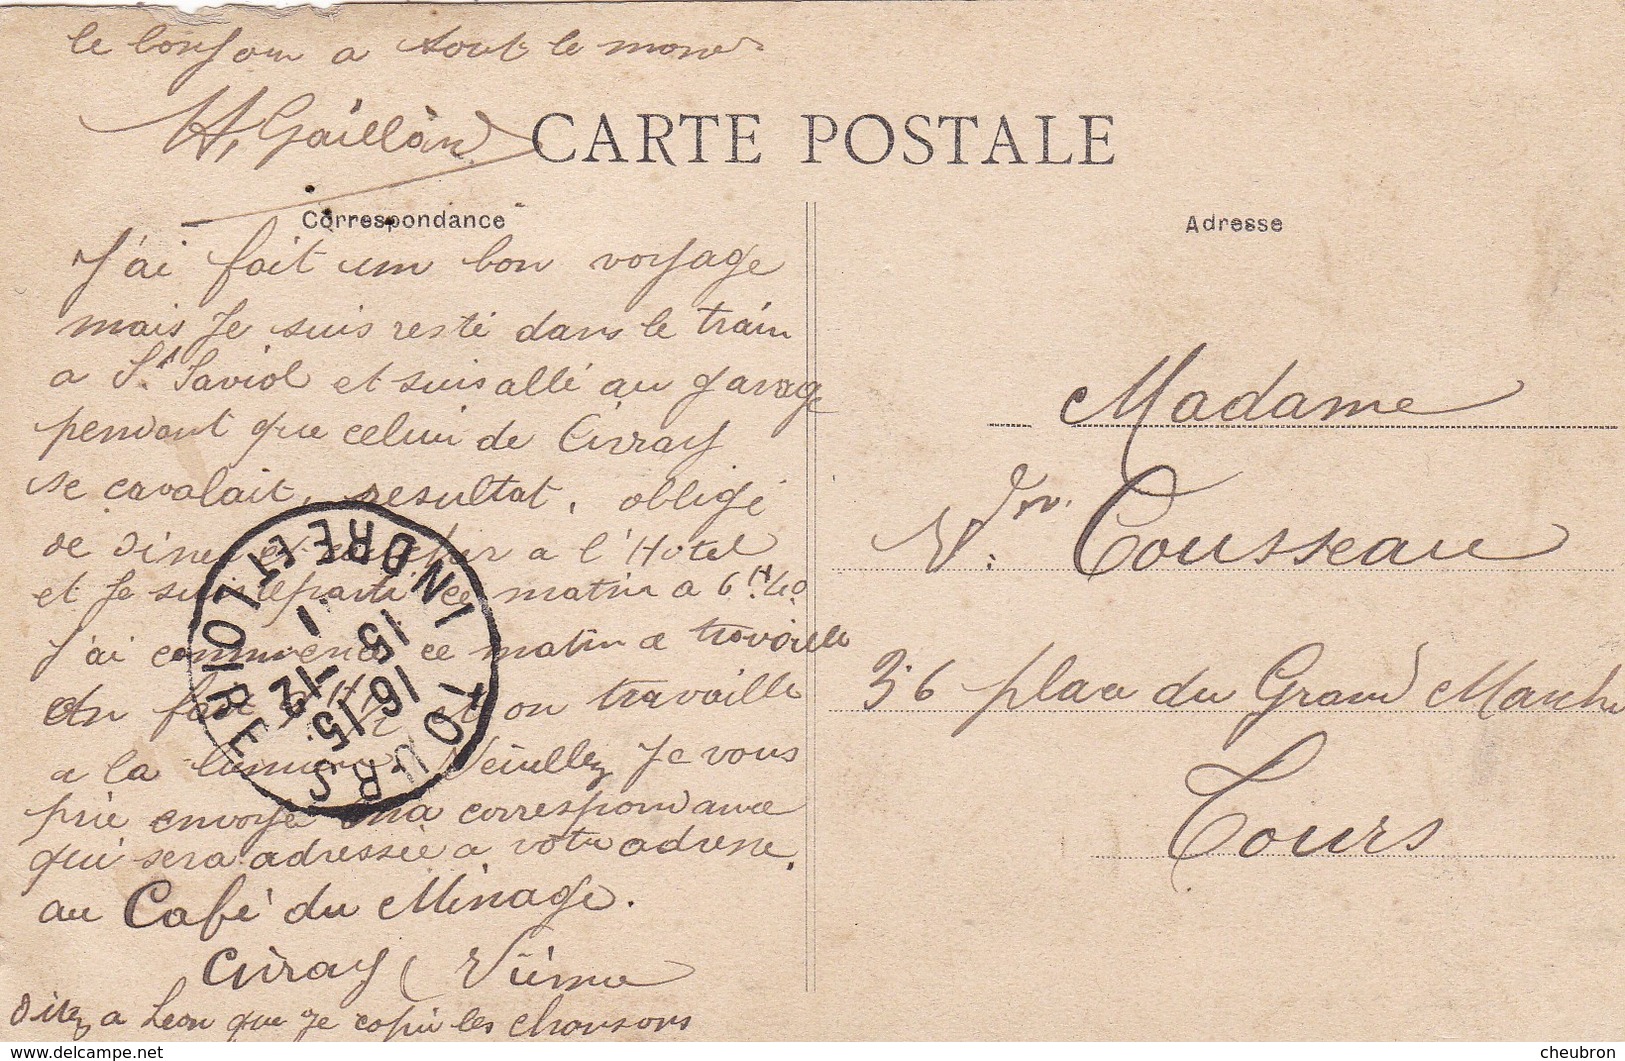 le bonjour a tout le monde
H. Gaillard
CARTE POSTALE
Correspondance
Adresse
J'ai fait un bon voyage
mais Je suis resté dans le train
a St Saviol et suis allé au garage
pendant que celui de Civray
se cavalait, resultat, obligé
de diner et coucher a l'Hotel
et Je suis reparti ce matin a 6H40
J'ai commencé ce matin a travaille
On fait H 1/2 et on travaille
a la lumiere. Veuillez Je vous
prie envoye ma correspondance
qui sera adressée a votre adresse.
au Café du Minage.
Civray Vienne
Dites a Leon que Je copie les chansons
Madame
Vve. Cousseau
36 place du Grand Marche
Tours
TOURS
INDRE ET LOIRE
16 15
15 -12
1
cheubron - delcampe.net